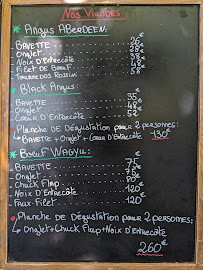 Nos Viandes:
* Angus Aberdeen: €
Bavette
Onglet
Noix D'Entrecôte
Filet de Bœuf 58
Tournedos Rossini 58
* Black Angus: €
Bavette
Onglet
Cœur D'Entrecôte 52
* Planche de Dégustation pour 2 personnes:
↳ Bavette + Onglet + Cœur D'Entrecôte 130€
* Bœuf Wagyu: €
Bavette 75
Onglet 75
Chuck Flap 80
Noix D'Entrecôte 120
Faux-Filet 120
* Planche de Dégustation pour 2 personnes:
↳ Onglet + Chuck Flap + Noix D'Entrecôte
260€